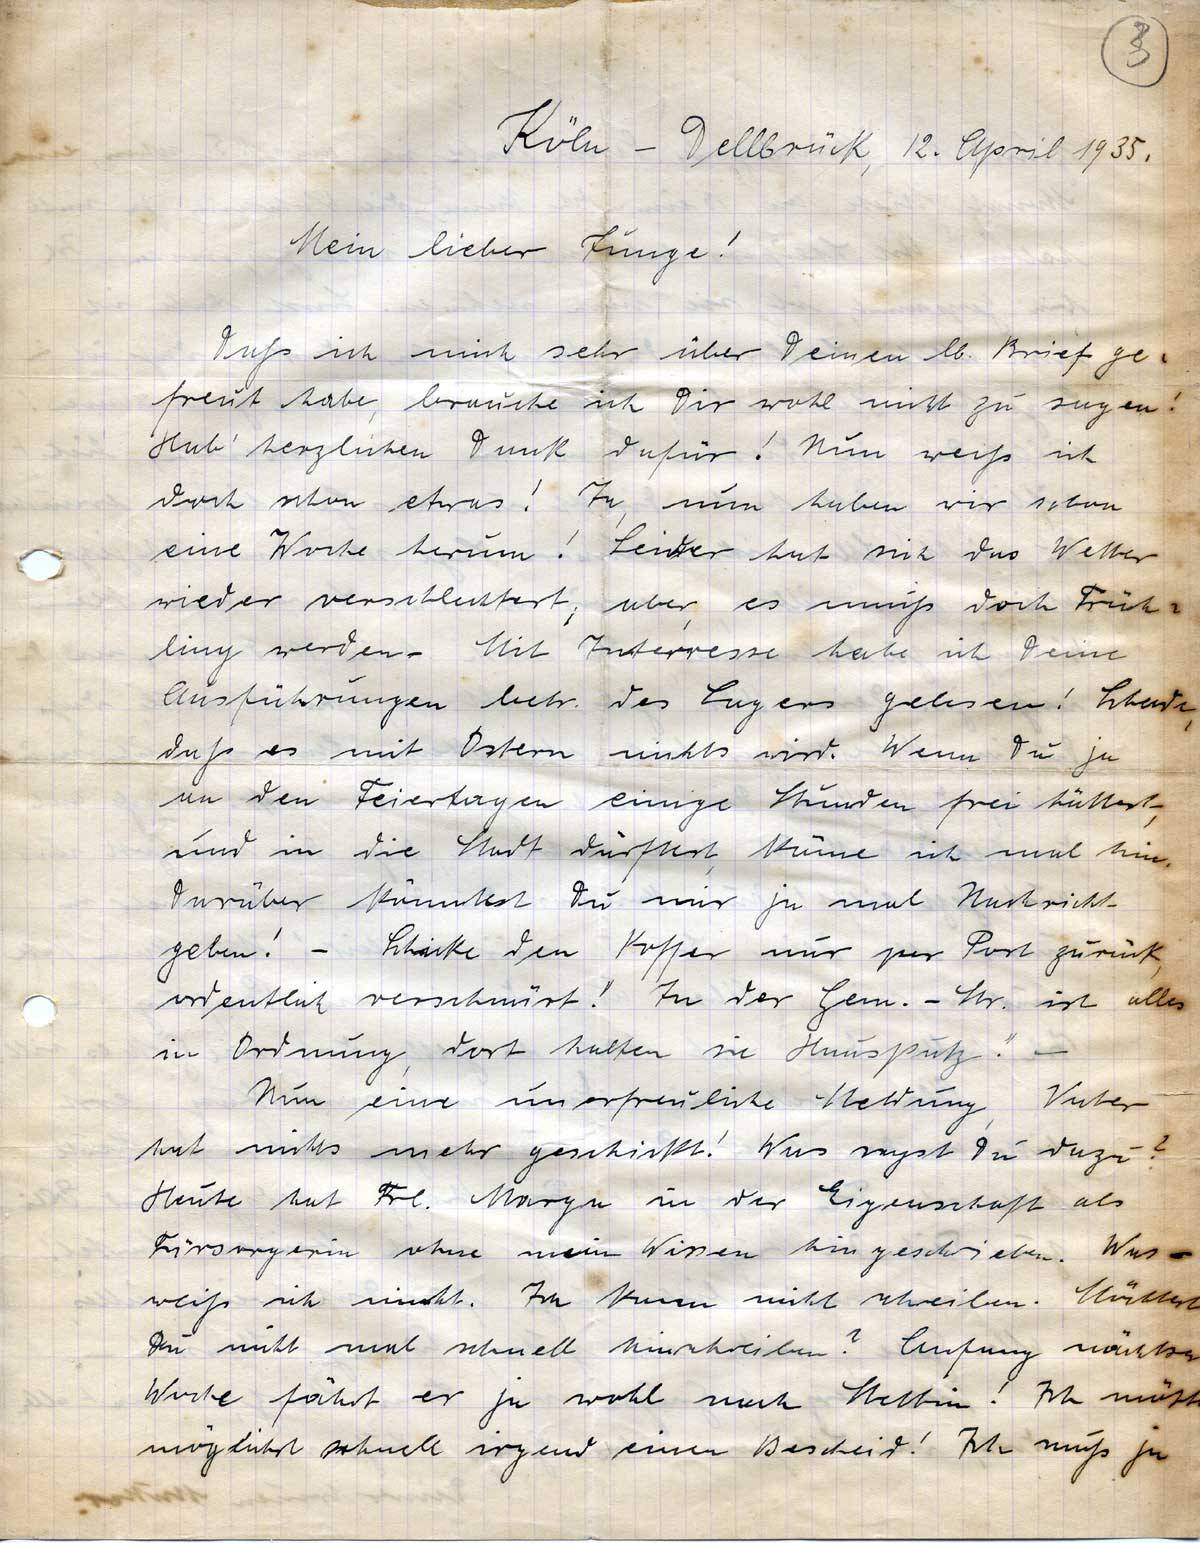 3
Köln – Dellbrück, 12. April 1935.
Mein lieber Junge!
Daß ich mich sehr über Deinen lb. Brief ge-
freut habe, brauche ich Dir wohl nicht zu sagen!
Hab' herzlichen Dank dafür! Nun weiß ich
doch schon etwas! Ja, nun haben wir schon
eine Woche herum! Leider hat sich das Wetter
wieder verschlechtert, aber, es muß doch Früh-
ling werden. Mit Interresse habe ich Deine
Ausführungen betr. des Lagers gelesen! Schade,
daß es mit Ostern nichts wird. Wenn Du ja
an den Feiertagen einige Stunden frei hättest,
und in die Stadt dürftest, käme ich mal hin.
Darüber könntest Du mir ja mal Nachricht
geben! – Schicke den Koffer nur per Post zurück,
ordentlich verschnürt! In der Gem.-Str. ist alles
in Ordnung, dort halten sie Hausputz! –
Nun eine unerfreuliche Meldung, Vater
hat nichts mehr geschickt! Was sagst Du dazu?
Heute hat Frl. Marga in der Eigenschaft als
Fürsorgerin ohne mein Wissen hingeschrieben. Was –
weiß ich nicht. Ich kann nicht schreiben. Möchtest
Du nicht mal schnell hinschreiben? Anfang nächster
Woche fährt er ja wohl nach Stettin! Ich möcht
möglichst schnell irgend einen Bescheid! Ich muß ja